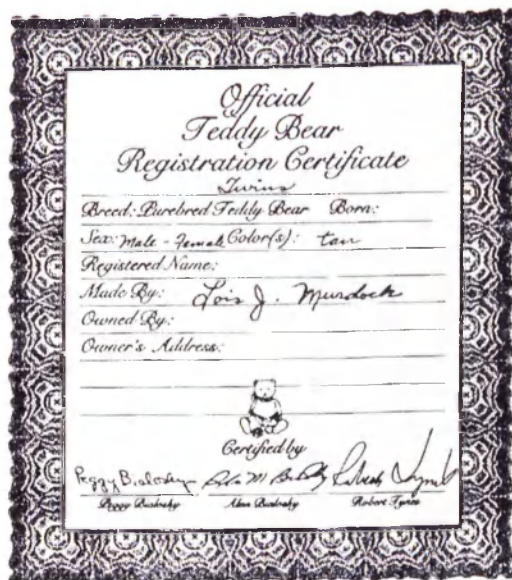 Official
Teddy Bear
Registration Certificate
Twins
Breed: Purebred Teddy Bear Born:
Sex: Male - Female Color(s): tan
Registered Name:
Made By: Lois J. Murdock
Owned By:
Owner's Address:
Certified by
Peggy Bialosky
Peggy Bialosky Alan Bialosky Robert Tynes